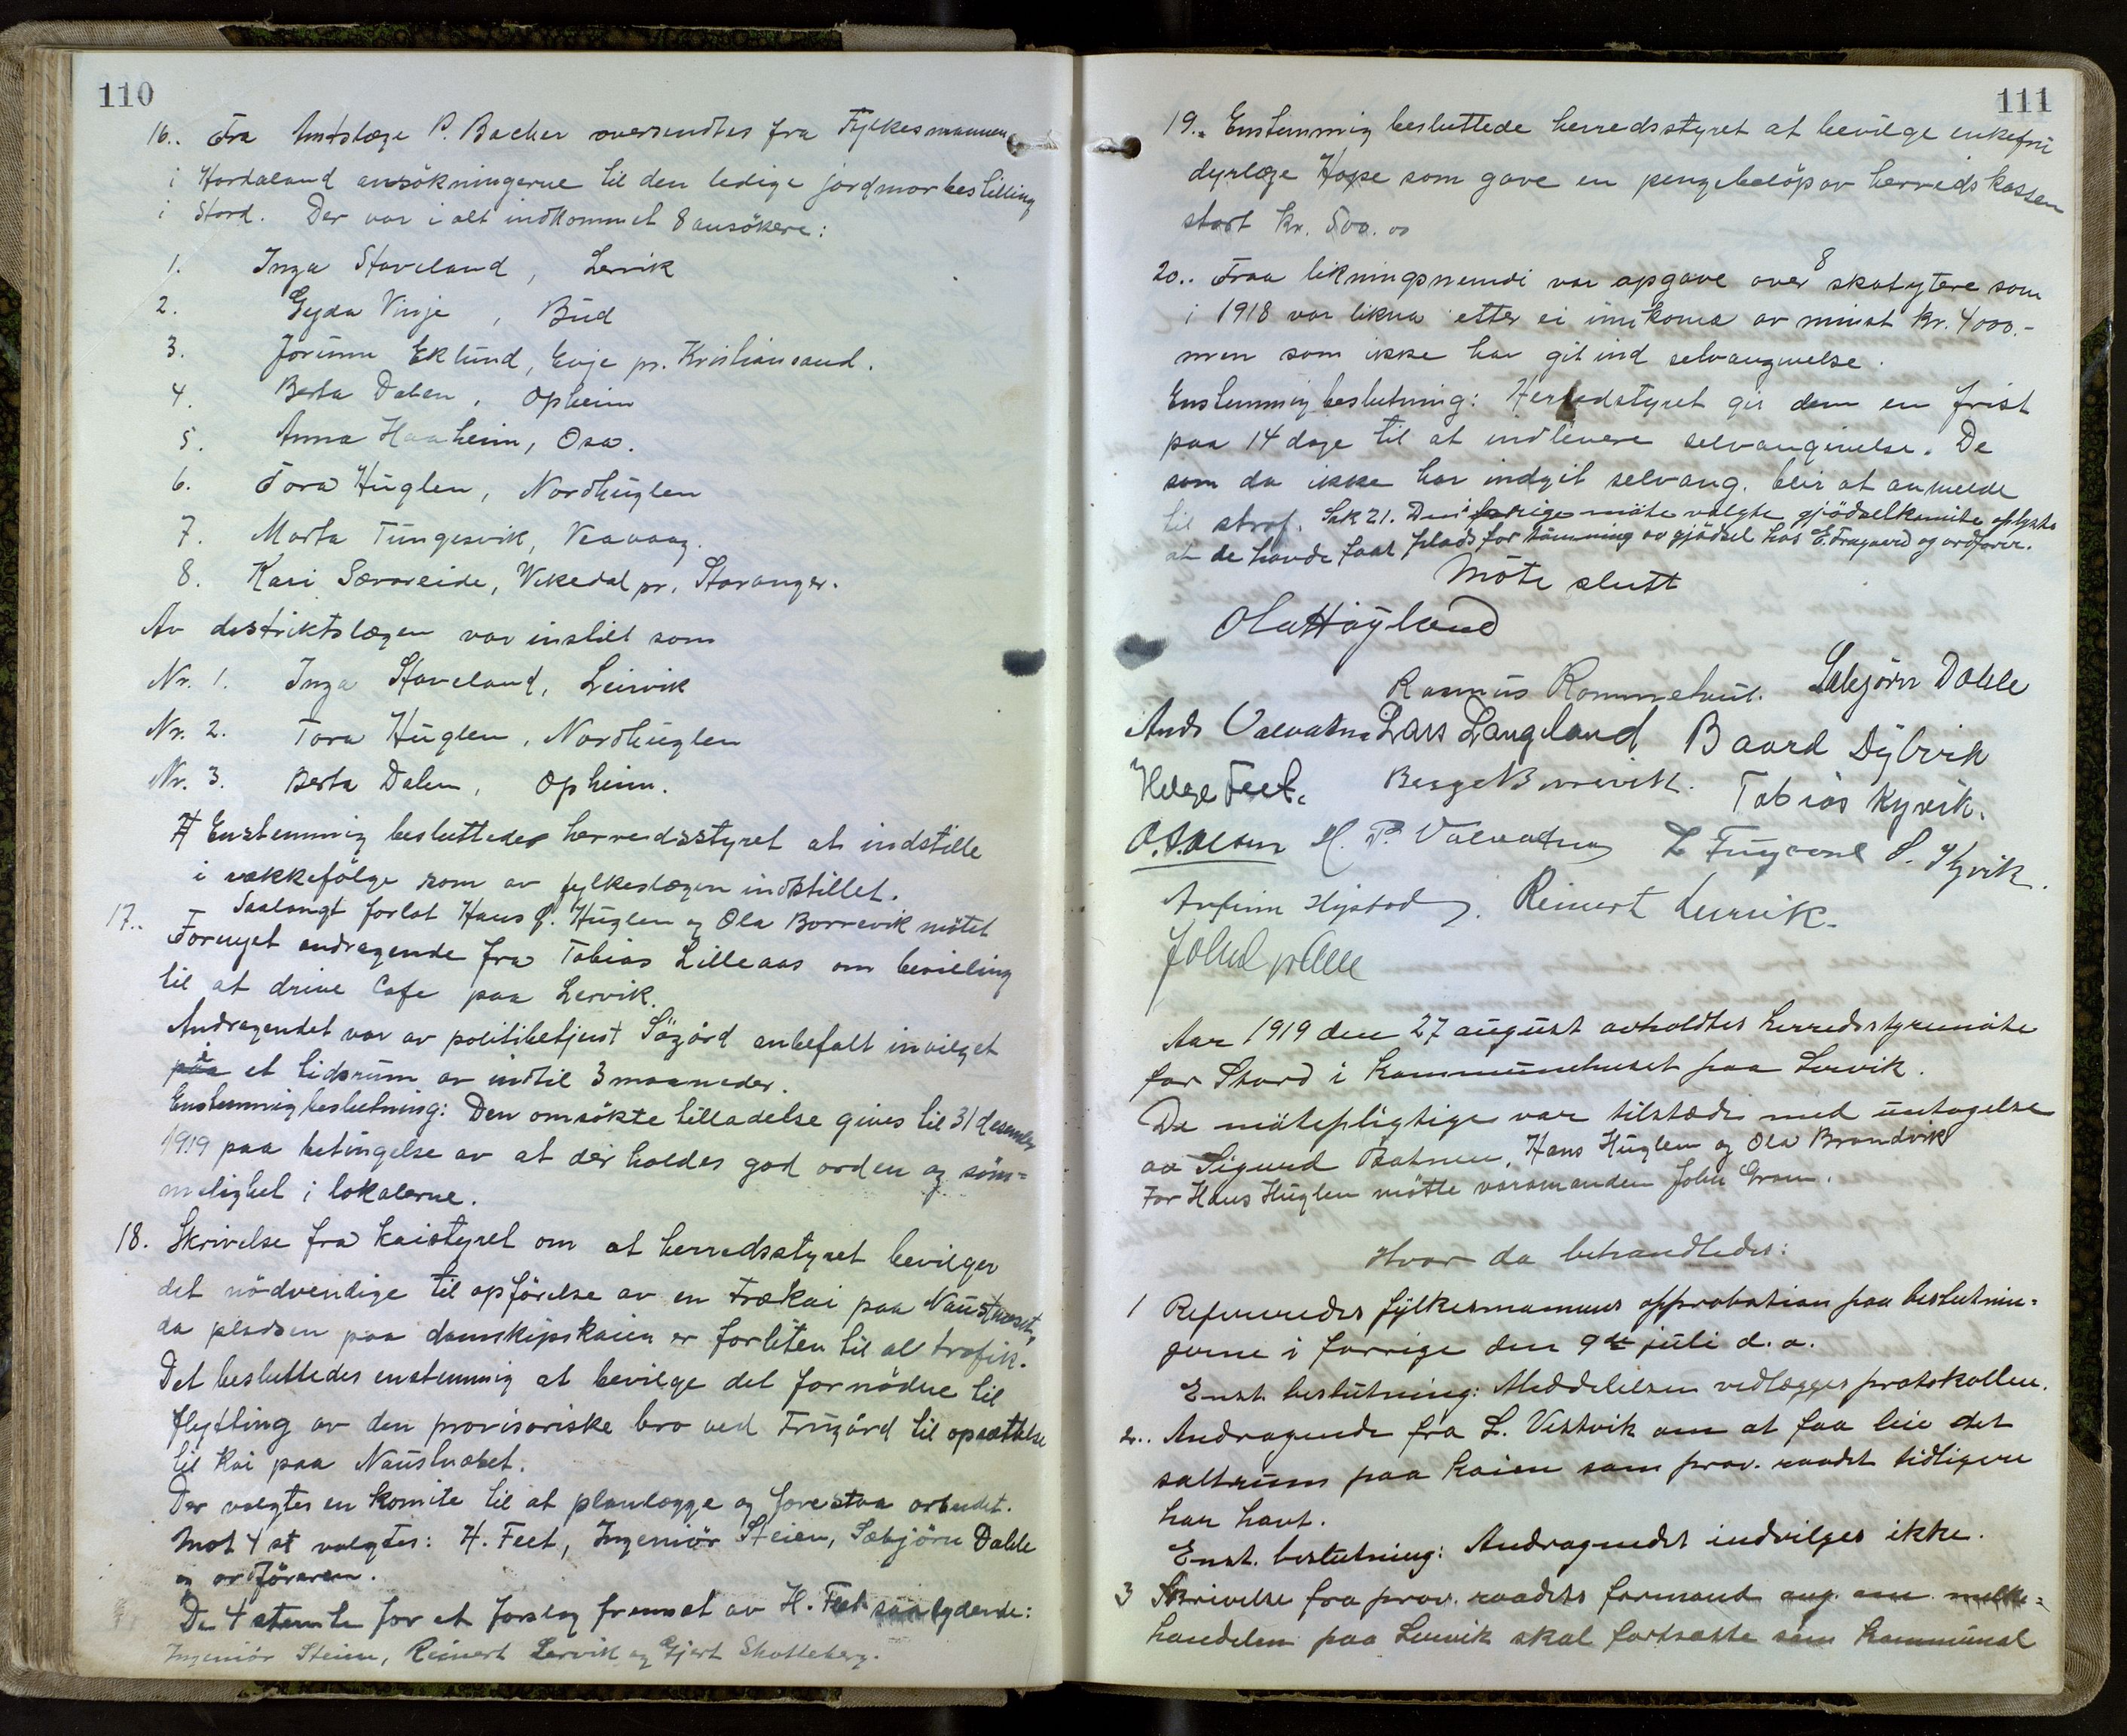 110
16.. Fra Amtslæge P. Backer oversendtes fra Fylkesmannen
i Hordaland ansökningerne til den ledige jordmorbestilling
i Stord. Der var i alt indkommet 8 ansökere:
1. Inga Staveland, Lervik
2. Gyda Vinje, Bud
3. Jorunn Eklund, Evje pr. Kristiansand.
4. Berta Dalen, Opheim
5. Anna Haaheim, Osa.
6. Tora Huglen, Nordhuglen
7. Marta Tungesvik, Veavaag.
8. Kari Særvareide, Vikedal pr. Stavanger.
Av distriktslægen var instilt som
Nr. 1. Inga Staveland, Leirvik
Nr. 2. Tora Huglen, Nordhuglen
Nr. 3. Berta Dalen, Opheim.
Enstemmig besluttedes herredsstyret at indstille
i rækkefölge som av fylkeslægen indstillet.
Saalangt forlot Hans Q. Huglen og Ola Borrevik mötet
17.. Fornyet andragende fra Tobias Lilleaas om bevilling
til at drive Cafe paa Lervik.
Andragendet var av politibetjent Sözård anbefalt invilget
paa et tidsrum av indtil 3 maaneder.
Enstemmig beslutning: Den omsökte tilladelse gives til 31 desember
1919 paa betingelse av at der holdes god orden og söm-
melighet i lokalerne.
18. Skrivelse fra kaistyret om at herredsstyret bevilger
det nödvendige til opförelse av en Trækai paa Naustnæset,
da pladsen paa damskipskaien er forliten til al trafik.
Det besluttedes enstemmig at bevilge det fornödne til
flytting av den provisoriske bro ved Frugård til opsættelse
til kai paa Naustnæset.
Der valgtes en komite til at planlægge og forestaa arbeidet.
Mot 4 st valgtes: H. Feet, Ingeniör Steien, Sæbjörn Dahle
og ordföreren.
De 4 stemte for et forslag fremsat av H. Feet saalydende:
Ingeniör Steien, Reinert Lervik og Gjert Skotteberg.
111
19.. Enstemmig besluttede herredsstyret at bevilge enkefru
dyrlæge Hope som gave en pengebelöp av herredskassen
stort kr. 500.00
20.. Fraa likningsnemdi var opgave over 8 skatytere som
i 1918 var likna etter ei innkoma av minst kr. 4000.-
men som ikke har git ind selvangivelse.
Enstemmig beslutning: Herredstyret gir dem en frist
paa 14 dage til at indlevere selvangivelse. De
som da ikke har indgit selvang. blir at anmelde
til straf. Sak 21. Den i forrige möte valgte gjödselkomite oplyste
at de havde faat plads for tömming av gjödsel hos E. Frugaard og ordförer.
Möte slutt
Ola Höyland
Rasmus Rommetveit. Sæbjörn Dahle
Ands Valvatna Lars Langeland Baard Dybvik
Helge Feet. Berge Borrevik. Tobias Kyvik.
O. A. Olsen H. P. Valvatna L Frugaard S. Kyvik.
Anfinn Hystad. Reinert Lervik.
Aar 1919 den 27 august avholdtes herredsstyremöte
for Stord i Kommunehuset paa Lervik.
De mötepligtige var tilstæde med untagelse
av Sigurd Batnen, Hans Huglen og Ola Brandvik
For Hans Huglen mötte varamanden John Gram.
Hvor da behandledes:
1 Refereredes fylkesmannens approbation paa beslutnin-
gerne i forrige den 9de juli d. a.
Enst. beslutning: Meddelelsen vedlægges protokollen.
2.. Andragende fra L. Vestvik om at faa leie det
saltrum paa kaien som prov. raadet tidligere
har havt.
Enst. beslutning: Andragendet indvilges ikke.
3 Skrivelse fra prov. raadets formand ang. om melke-
handelen paa Lervik skal fortsætte som kommunal